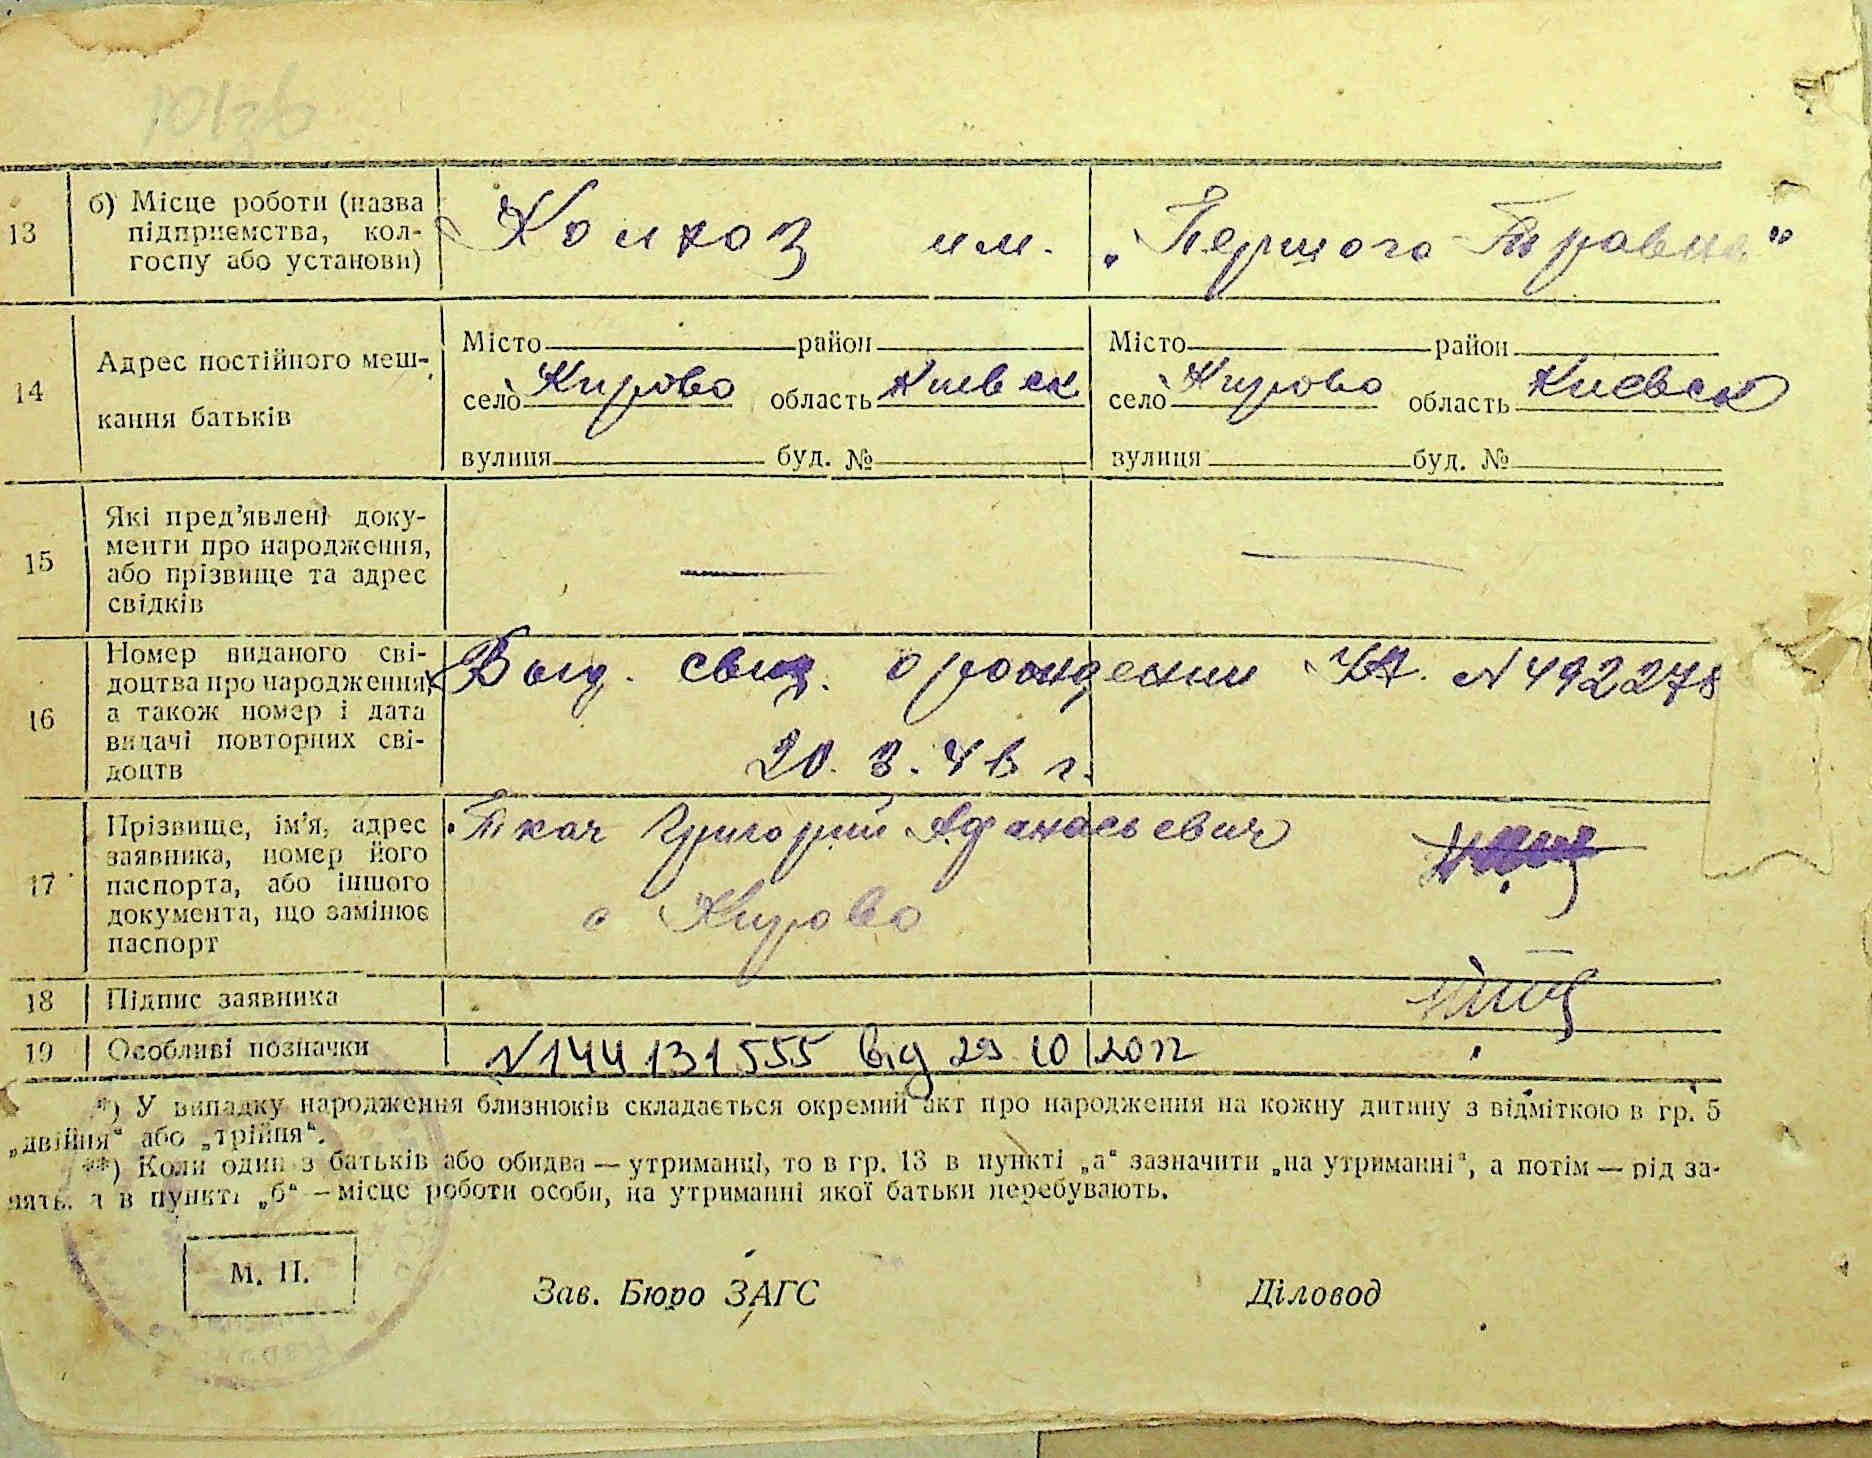 13
б) Місце роботи (назва
підприємства, кол-
госпу або установи)
Колхоз им. „Першого Травня"
14
Адрес постійного меш-
кання батьків
Місто район Місто район
село Кирово область Киевск село Кирово область Киевск
вулиця буд. № вулиця буд. №
15
Які пред'явлені доку-
менти про народження,
або прізвище та адрес
свідків
16
Номер виданого сві-
доцтва про народження,
а також номер і дата
видачі повторних сві-
доцтв
Выд. свид. о рождении УА. N 492278
20. 3. 46 г.
17
Прізвище, ім'я, адрес
заявника, номер його
паспорта, або іншого
документа, що замінює
паспорт
Ткач Григорий Афанасьевич
с Кирово
18 Підпис заявника
19 Особливі позначки N 144 131 555 від 29 10 2012
*) У випадку народження близнюків складається окремий акт про народження на кожну дитину з відміткою в гр. 5
„двійня" або „трійня".
**) Коли один з батьків або обидва — утриманці, то в гр. 13 в пункті „а" зазначити „на утриманні", а потім — рід за-
нять, а в пункті „б" — місце роботи особи, на утриманні якої батьки перебувають.
М. П. Зав. Бюро ЗАГС Діловод